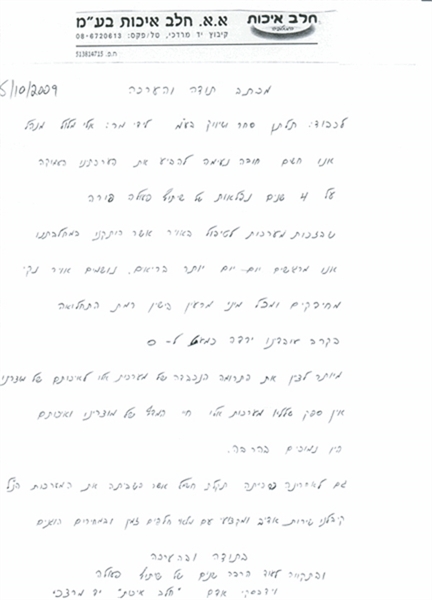 חלב איכות
א.א. חלב איכות בע"מ
קיבוץ יד מרדכי, טל/פקס: 08-6720613
ח.פ. 513814715
5/10/2009
מכתב תודה והערכה
לכבוד: תלתן סחר ושיווק בע"מ לידי מר: אלי מלול מנהל
אנו חשים חובה נעימה להביע את הערכתנו העמוקה
על 4 שנים נפלאות של שיתוף פעולה פורה
שבזכות מערכות לטיפול באויר אשר היתקנו במחלבתנו
אנו מרגישים יום-יום יותר בריאים, נושמים אויר נקי
מחידקים ומכל מיני מרעין בישין רמת התחלואה
בקרב עובדנו ירדה כמעט ל- 0
מיותר לציין את התרומה הנכבדה של מערכות אלו לאיכותם של מוצרינו
אין ספק שללא מערכות אלו חיי המדף של מוצרינו ואיכותם
היו נמוכים בהרבה.
גם לאחרונה פריתה תקלת חשמל אשר השביתה את המערכות הנ"ל
קיבלנו שירות אדיב ומקצועי עם מלאי חלקים זמין ובמחירים הוגנים
בתודה ובהערכה
ובתקווה לעוד הרבה שנים של שיתוף פעולה
אדם "חלב איכות" יד מרדכי